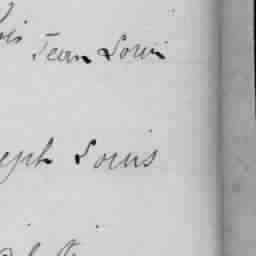 ois Jean Louis
eph Louis